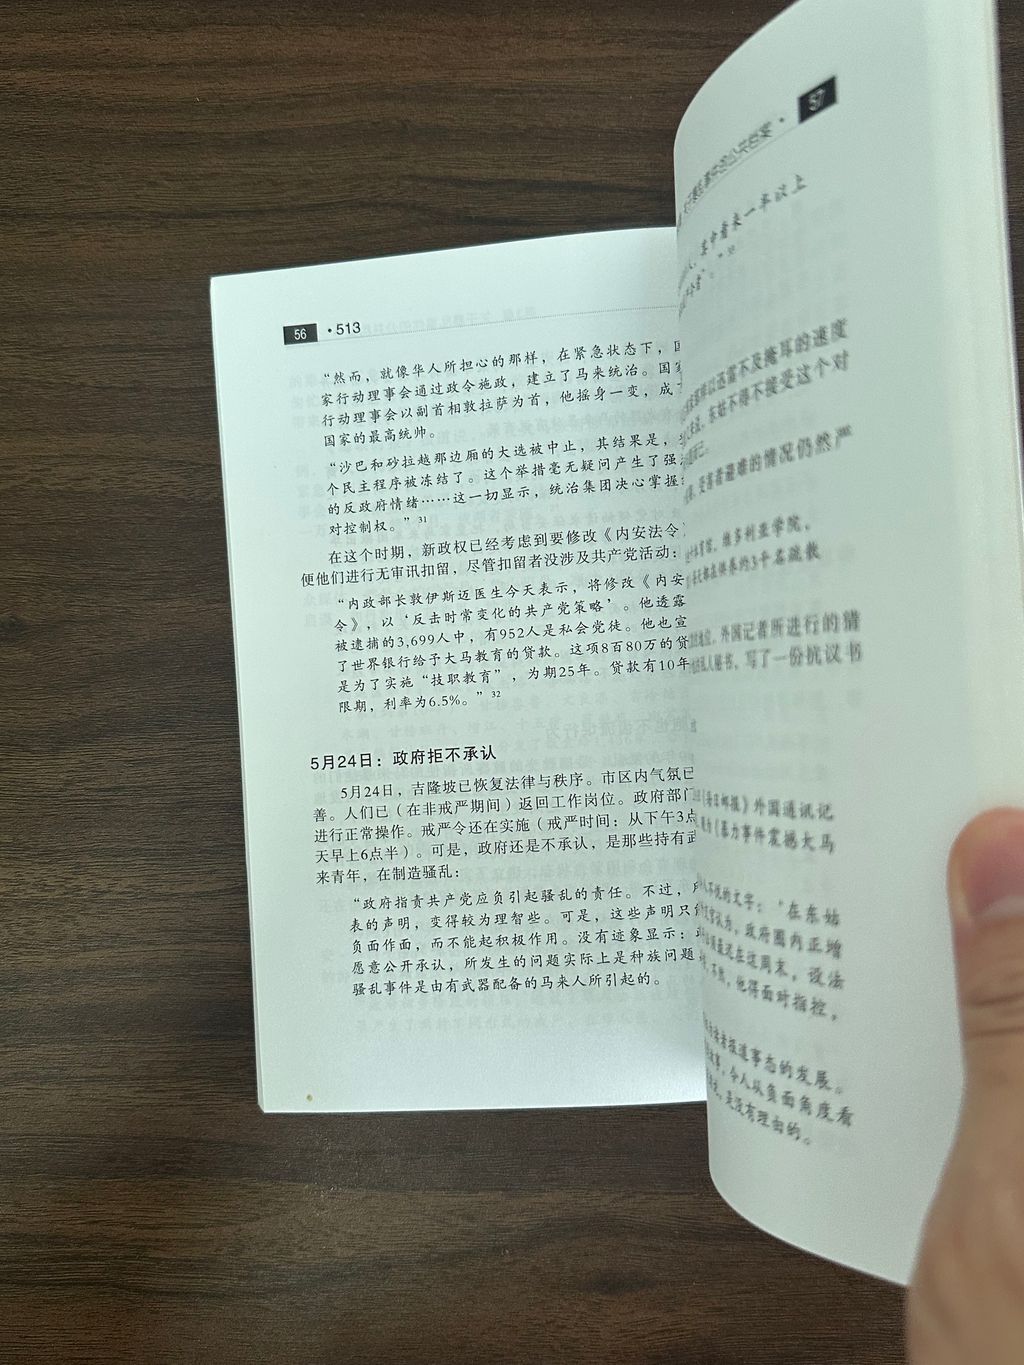 56 ·513
“然而，就像华人所担心的那样，在紧急状态下，国
家行动理事会通过政令施政，建立了马来统治。国家
行动理事会以副首相敦拉萨为首，他摇身一变，成
国家的最高统帅。
“沙巴和砂拉越那边厢的大选被中止，其结果是，
个民主程序被冻结了。这个举措毫无疑问产生了强
的反政府情绪……这一切显示，统治集团决心掌握
对控制权。”31
在这个时期，新政权已经考虑到要修改《内安法令
便他们进行无审讯扣留，尽管扣留者没涉及共产党活动：
“内政部长敦伊斯迈医生今天表示，将修改《内安
令》，以‘反击时常变化的共产党策略’。他透露
被逮捕的3,699人中，有952人是私会党徒。他也宣
了世界银行给予大马教育的贷款。这项8百80万的贷
是为了实施“技职教育”，为期25年。贷款有10年
限期，利率为6.5%。”32
5月24日：政府拒不承认
5月24日，吉隆坡已恢复法律与秩序。市区内气氛已
善。人们已（在非戒严期间）返回工作岗位。政府部门
进行正常操作。戒严令还在实施（戒严时间：从下午3点
天早上6点半）。可是，政府还是不承认，是那些持有武
来青年，在制造骚乱：
“政府指责共产党应负引起骚乱的责任。不过，
表的声明，变得较为理智些。可是，这些声明只
负面作面，而不能起积极作用。没有迹象显示：
愿意公开承认，所发生的问题实际上是种族问题
骚乱事件是由有武器配备的马来人所引起的。
57
来一年以上
以迅雷不及掩耳的速度
东姑不得不接受这个对
受害者避难的情况仍然严
维多利亚学院，
供养约3千名疏散
外国记者所进行的猎
写了一份抗议书
外国通讯记
《暴力事件震撼大马
不悦的文字：“在东姑
认为，政府圈内正增
在这周末，设法
他得面对指控，
报道事态的发展。
令人从负面角度看
是没有理由的。